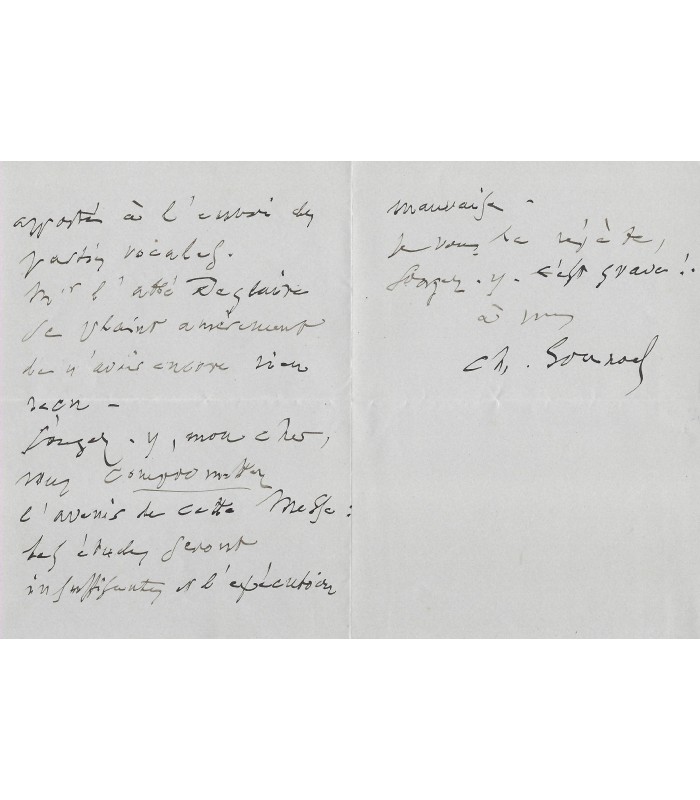 apportés à l'envoi des
parties vocales.
Mr l'abbé Deglaire
se plaint amèrement
de n'avoir encore rien
reçu -
Songez-y, mon cher,
vous compromettez
l'avenir de cette Messe :
les études seront
insuffisantes et l'exécution
mauvaise -
Je vous le répète,
Songez-y - c'est grave !.
à vous
Ch. Gounod